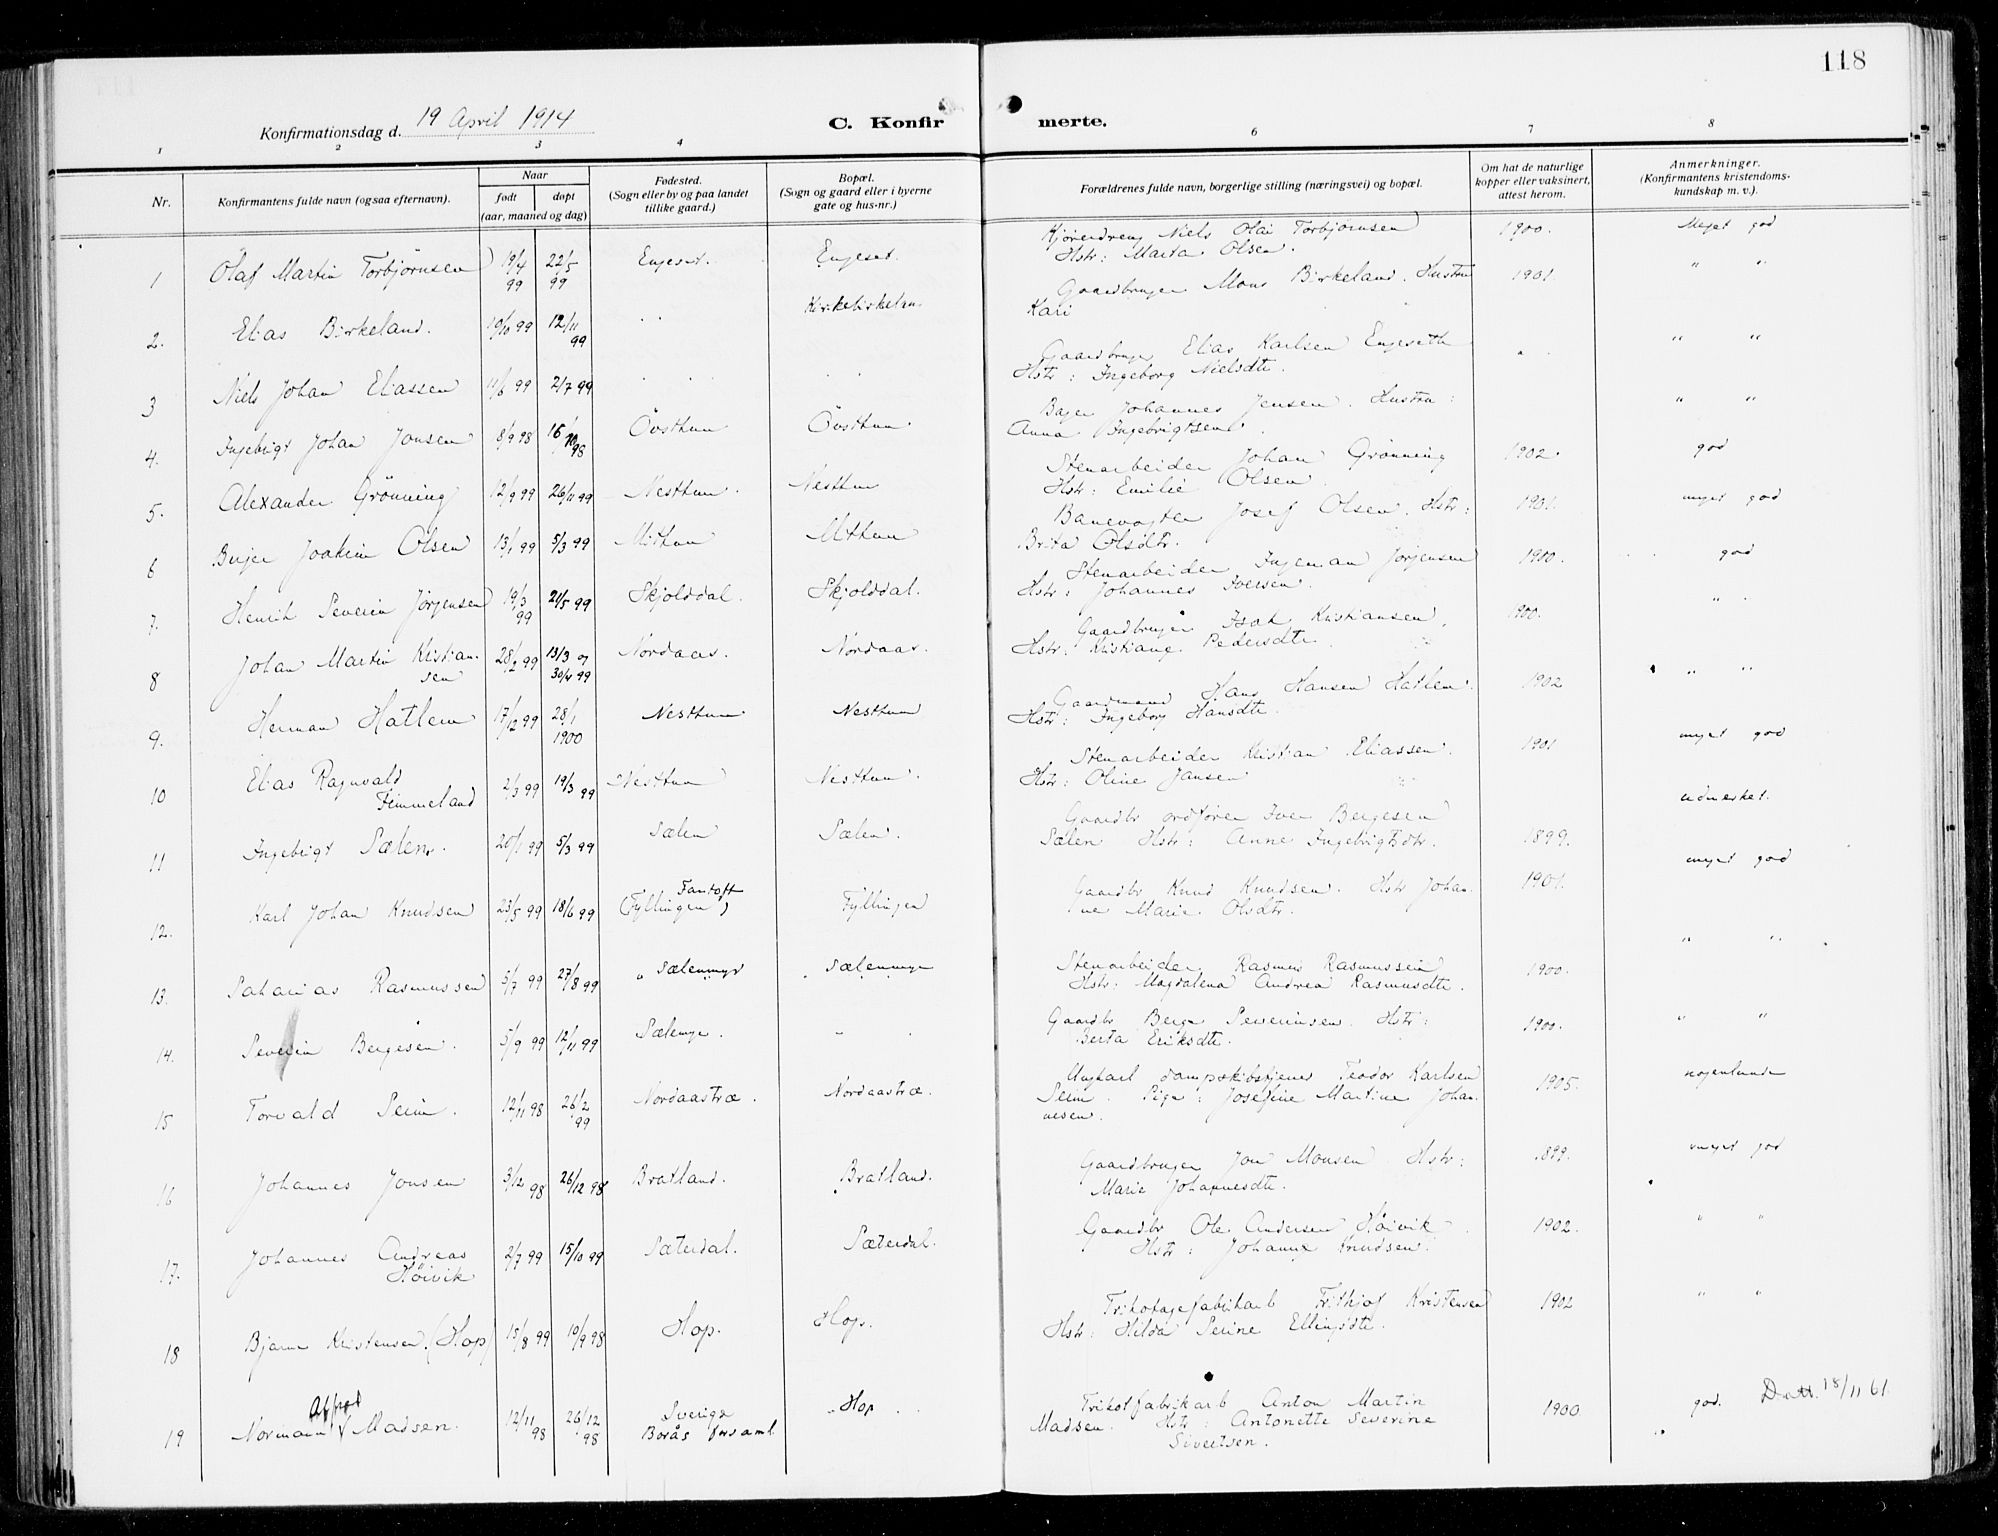 118
Konfirmationsdag d. 19 April 1914
C. Konfirmerte.
1 2 3 4 5 6 7 8
Nr. Konfirmantens fulde navn (ogsaa efternavn). Naar født døpt (aar, maaned og dag) Fødested. (Sogn eller by og paa landet tillike gaard.) Bopæl. (Sogn og gaard eller i byerne gate og hus-nr.) Forældrenes fulde navn, borgerlige stilling (næringsvei) og bopæl. Om hat de naturlige kopper eller vaksinert, attest herom. Anmerkninger. (Konfirmantens kristendomskundskap m. v.).
1 Olaf Martin Torbjørnsen 19/4 99 22/5 99 Engeset. Engeset. Kjøredreng Niels Olai Torbjørnsen 1900. Meget god
Hstr: Marta Olsen.
2. Elias Birkeland. 19/10 99 12/11 99 " Kirkebirkelan. Gaardbruger Mons Birkeland. Hustru 1901. " "
Kari
3 Niels Johan Eliassen 11/6 99 2/7 99 " " " " Gaardbruger Elias Karlsen Engeseth " " "
Hstr: Ingeborg Nielsdtr.
4. Ingebrigt Johan Jonsen 8/9 98 16/10 98 Övsttun Övsttun. Bager Johannes Jensen. Hustru: " "
Anna Ingebrigtsen.
5. Alexander Grönning 12/9 99 26/11 99 Nesttun. Nesttun Stenarbeider Johan Grönning 1902. god
Hstr: Emilie Olsen.
6 Birger Joakim Olsen 13/1 99 5/3 99 Mittun Mittun Banevogter Josef Olsen. Hstr: 1901. meget god
Brita Olsdtr.
7. Henrik Severin Jørgensen 19/3 99 21/5 99 Skjolddal. Skjolddal. Stenarbeider Ingeman Jørgensen 1900. god
Hstr: Johannes Iversen.
8 Johan Martin Kristiansen 28/2 99 13/3 og 30/4 99 Nordaas. Nordaas. Gaardbruger Isak Kristiansen, 1900. " "
Hstr: Kristiane Pedersdtr.
9. Herman Hatlem 17/12 99 28/1 1900 Nesttun Nesttun Gaardmand Hans Hansen Hatlem. 1902 " "
Hstr: Ingeborg Hansdtr.
10 Elias Ragnvald Fimmeland 2/3 99 19/3 99 Nesttun Nesttun. Stenarbeider Kristian Eliassen. 1901 meget god
Hstr: Oline Jansen
11 Ingebrigt Sælen. 20/1 99 5/3 99 Sælen Sælen. Gaardbr ordfører Iver Bergesen udmerket.
Sælen Hstr: Anne Ingebrigtsdtr. 1899.
12. Karl Johan Knudsen 23/5 99 18/6 99 Fantoft (Fyllingen) Fyllingen Gaardbr Knud Knudsen. Hstr Johan- 1901. meget god
ne Marie Olsdtr.
13. Sakarias Rasmussen 5/7 99 27/8 99 Sælenmyr Sælenmyr Stenarbeider Rasmus Rasmussen 1900. " "
Hstr: Magdalena Andrea Rasmusdtr.
14. Severin Bergesen. 5/9 99 12/11 99 Sælemyr. " " Gaardbr Berge Severinsen. Hstr: 1900. " "
Berta Eriksdtr.
15 Torvald Seim. 12/11 98 26/2 99 Nordaastræ. Nordaastræ. Ungkarl dampskibstjener Teodor Karlsen 1905. nogenlunde
Seim. Pige: Josefine Martine Johan-
nesen.
16 Johannes Jonsen 3/12 98 26/12 98 Bratland. Bratland. Gaardbruger Jon Monsen. Hstr: 1899. meget god
Marie Johannesdtr.
17. Johannes Andreas Høivik 2/7 99 15/10 99 Sæterdal. Sæterdal. Gaardbr Ole Andersen Høivik. 1902. " "
Hstr: Johanne Knudsen.
18 Bjarne Kristensen. (Hop) 15/8 99 10/9 98 Hop. Hop. Trikotagefabrikarb Frithjof Kristensen 1902 " "
Hstr: Hilda Serine Ellingsdtr.
19 Normann Alfred Madsen. 12/11 98 26/12 98 Sverige Borås forsaml " Hop Trikotfabrikarb Anton Martin 1900 god. Datt. 18/11 61.
Madsen. Hstr: Antonette Severine
Sivertsen.